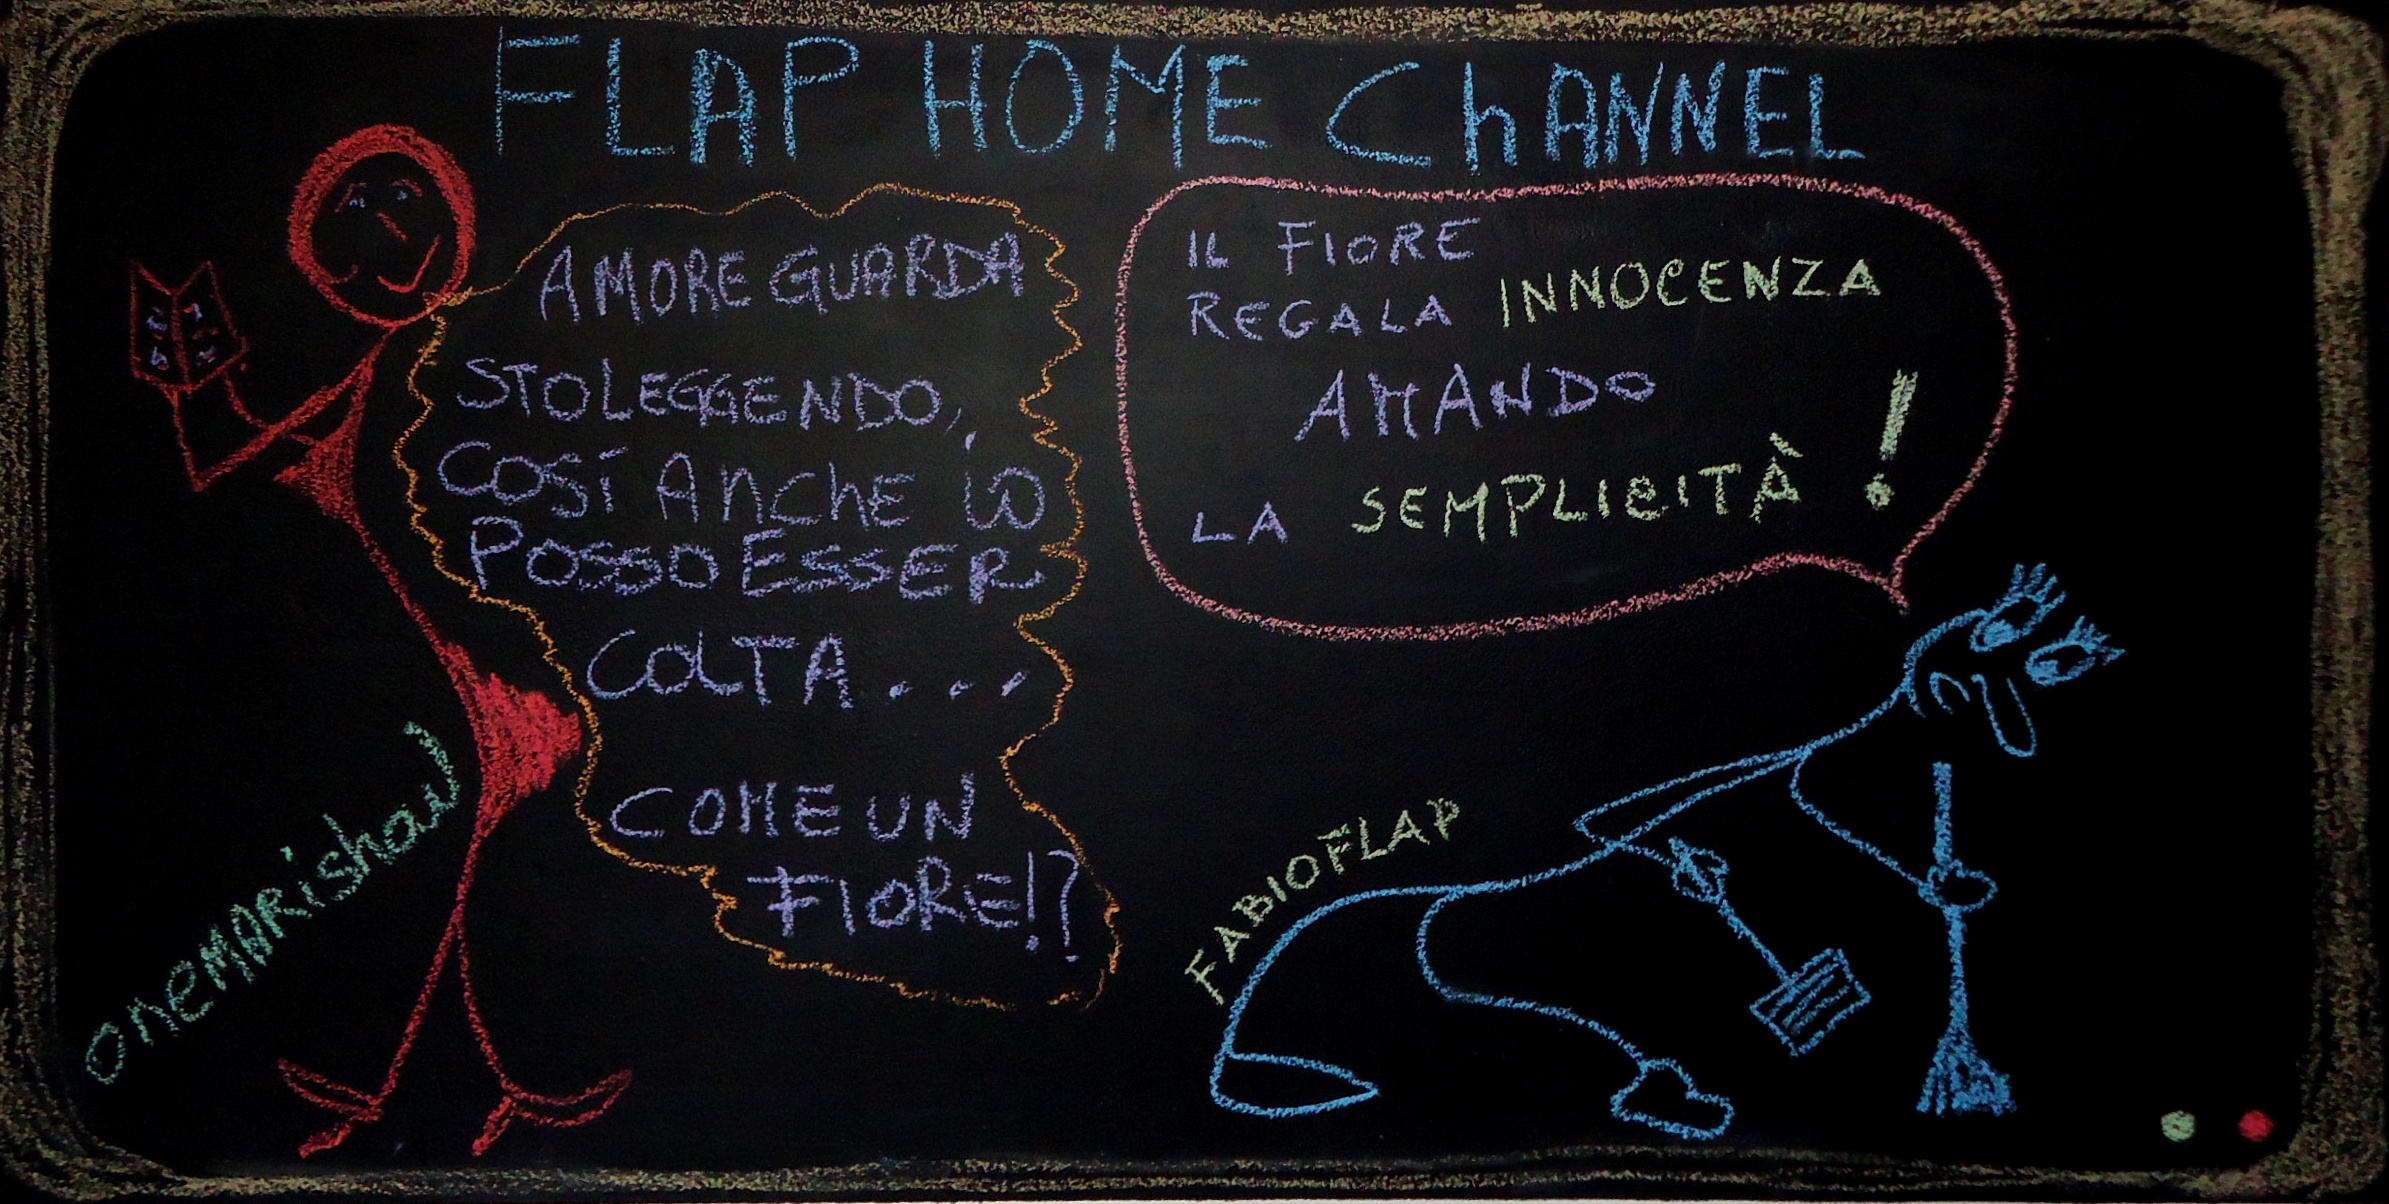 FLAP HOME ChANNEL
AMORE GUARDA
STO LEGGENDO,
COSÍ ANChE iO
POSSO ESSER
COLTA...
COME UN
FIORE!?
IL FIORE
REGALA INNOCENZA
AMANDO
LA SEMPLICITÀ!
oneMARishow
FABIOFLAP